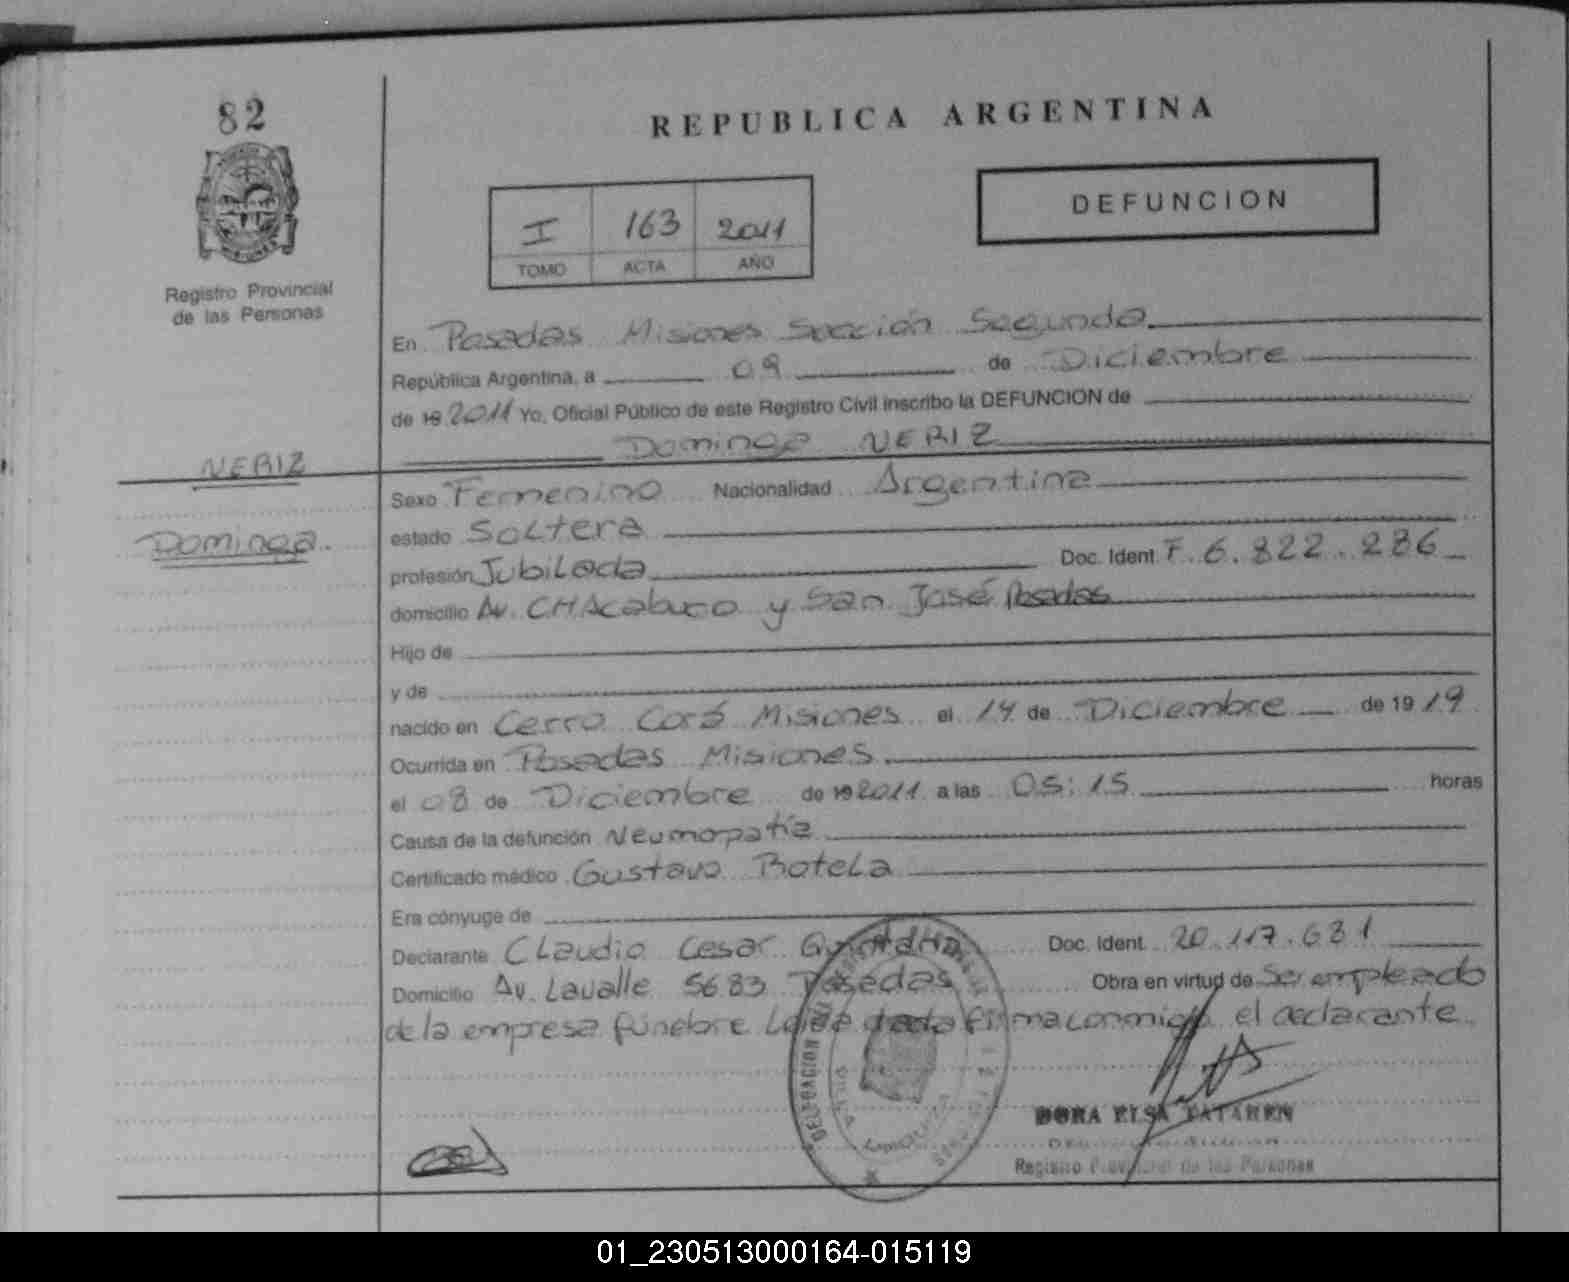 82
REPUBLICA ARGENTINA
DEFUNCION
I 163 2011
TOMO ACTA AÑO
Registro Provincial
de las Personas
En Posadas Misiones Sección Segunda
República Argentina, a 09 de Diciembre
de 19 2011 Yo, Oficial Público de este Registro Civil inscribo la DEFUNCION de
Dominga NERIZ
NERIZ
Dominga
Sexo Femenino Nacionalidad Argentina
estado Soltera
profesión Jubilada Doc. Ident. F. 6.822.286
domicilio Av. CHAcabuco y San José Posadas
Hijo de
y de
nacido en Cerro Corá Misiones el 14 de Diciembre de 19 19
Ocurrida en Posadas Misiones
el 08 de Diciembre de 19 2011 a las 05:15 horas
Causa de la defunción Neumopatía
Certificado médico Gustavo Botela
Era cónyuge de
Declarante Claudio Cesar Doc. Ident. 20.117.631
Domicilio Av. Lavalle 5683 Posadas Obra en virtud de Ser empleado
de la empresa fúnebre Leída acta firma conmigo el declarante
DELEGACION
DORA ELSA TATAREN
Registro Provincial de las Personas
01_230513000164-015119